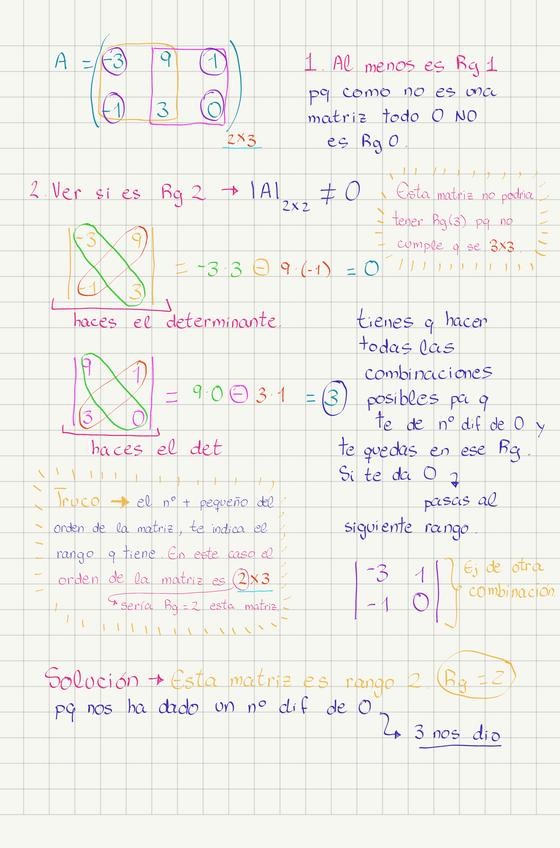 A = (-3 9 1
-1 3 0)
2x3
1. Al menos es Rg 1
pq como no es una
matriz todo 0 NO
es Rg 0.
2. Ver si es Rg 2 → |A|2x2 ≠ 0
Esta matriz no podria
tener Rg(3) pq no
cumple q se 3x3.
|-3 9|
|-1 3| = -3·3 - 9·(-1) = 0
haces el determinante.
|9 1|
|3 0| = 9·0 - 3·1 = 3
haces el det
tienes q hacer
todas las
combinaciones
posibles pa q
te de nº dif de 0 y
te quedas en ese Rg.
Si te da 0
pasas al
siguiente rango.
Truco → el nº + pequeño del
orden de la matriz, te indica el
rango q tiene. En este caso el
orden de la matriz es 2x3
sería Rg=2 esta matriz.
|-3 1|
|-1 0|
Ej de otra
combinacion
Solución → Esta matriz es rango 2. Rg = 2
pq nos ha dado un nº dif de 0
3 nos dio